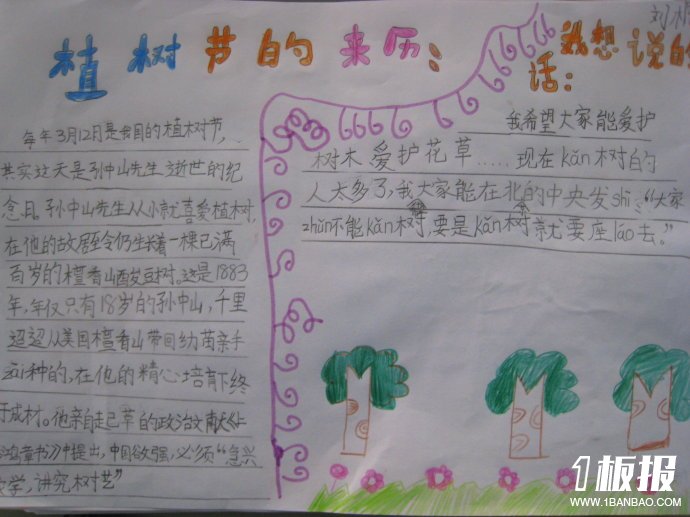 植树节的来历：
每年3月12日是我国的植树节，
其实这天是孙中山先生逝世的纪
念日。孙中山先生从小就喜爱植树，
在他的故居至今仍生长着一棵已满
百岁的檀香山酸豆树。这是1883
年，年仅只有18岁的孙中山，千里
迢迢从美国檀香山带回幼苗亲手
种的，在他的精心培育下终
于成材。他亲自起草的政治文献《上
鸿章书》中提出，中国欲强，必须“急兴
农学，讲究树艺”
刘朴
我想说的
话：
我希望大家能爱护
树木 爱护花草……现在kǎn树的
人太多了，我大家能在北的中央发shì：“大家
zhǔn不能kǎn树，要是kǎn树就要座láo去。”
1板报
WWW.1BANBAO.COM